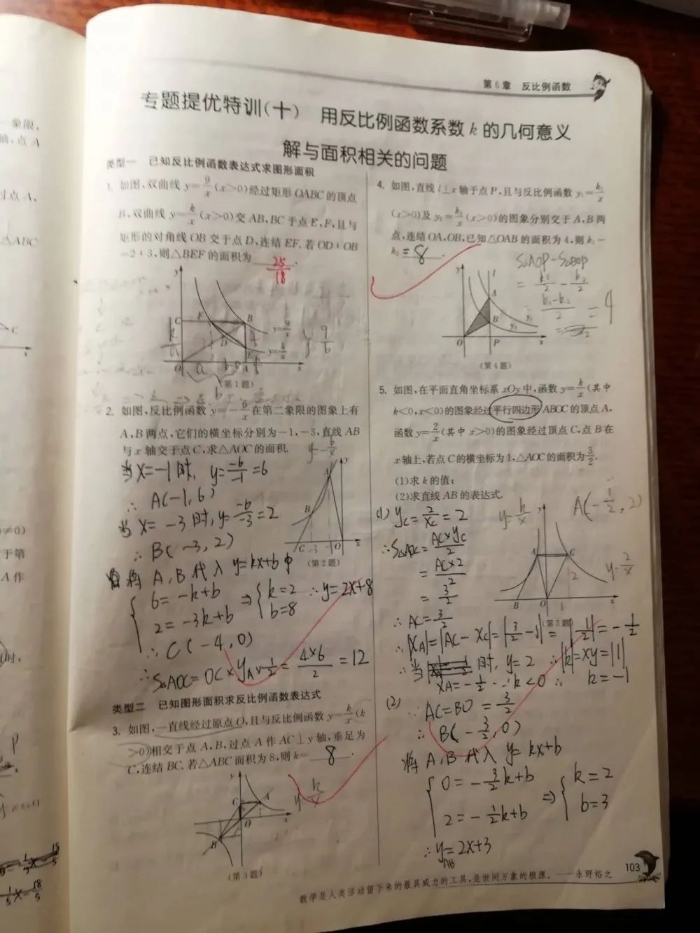 第6章 反比例函数
专题提优特训(十) 用反比例函数系数k的几何意义
解与面积相关的问题
类型一 已知反比例函数表达式求图形面积
1. 如图,双曲线 y=9/x (x>0)经过矩形OABC的顶点
B,双曲线 y=k/x (x>0)交AB,BC于点E,F,且与
矩形的对角线OB交于点D,连结EF.若OD:OB
=2:3,则△BEF的面积为 25/18 .
(第1题)
2. 如图,反比例函数 y=-6/x 在第二象限的图象上有
A,B两点,它们的横坐标分别为-1,-3,直线AB
与x轴交于点C,求△AOC的面积.
当X=-1时, y=-6/-1=6
∴ A(-1,6)
当X=-3时,y=-6/-3=2
∴ B(-3,2)
将A,B代入y=kx+b中
{6=-k+b 2=-3k+b ⇒ {k=2 b=8 ∴y=2x+8
∴ C(-4,0)
∴ S△AOC=OC×yA×1/2=4×6/2=12
(第2题)
类型二 已知图形面积求反比例函数表达式
3. 如图,一直线经过原点O,且与反比例函数 y=k/x (k
>0)相交于点A,B,过点A作AC⊥y轴,垂足为
C,连结BC.若△ABC面积为8,则k= 8 .
(第3题)
4. 如图,直线l⊥x轴于点P,且与反比例函数 y₁=k₁/x
(x>0)及 y₂=k₂/x (x>0)的图象分别交于A,B两
点,连结OA,OB,已知△OAB的面积为4,则k₁-
k₂=8 .
S△AOP-S△BOP
=k₁/2-k₂/2
=k₁-k₂/2=4
(第4题)
5. 如图,在平面直角坐标系xOy中,函数 y=k/x (其中
k<0,x<0)的图象经过平行四边形ABOC的顶点A,
函数 y=2/x (其中x>0)的图象经过顶点C,点B在
x轴上,若点C的横坐标为1,△AOC的面积为3/2.
(1)求k的值;
(2)求直线AB的表达式.
(1) yC=2/xC=2
∴S△AOC=AC×yC/2
=AC×2/2
=3/2
A(-1/2,2)
y=k/x
y=2/x
(第5题)
∴AC=3/2
∴|XA|=|AC-XC|=|3/2-1|=|1/2|=-1/2
∴当XA=-1/2时,y=2 ∴|k|=xy=|1|
∵k<0 ∴k=-1
(2) AC=BO=3/2
∴B(-3/2,0)
将A,B代入y=kx+b
{0=-3/2k+b 2=-1/2k+b ⇒ {k=2 b=3
∴yAB=2x+3
数学是人类活动留下来的最具威力的工具,是世间万象的根源。——永野裕之
103